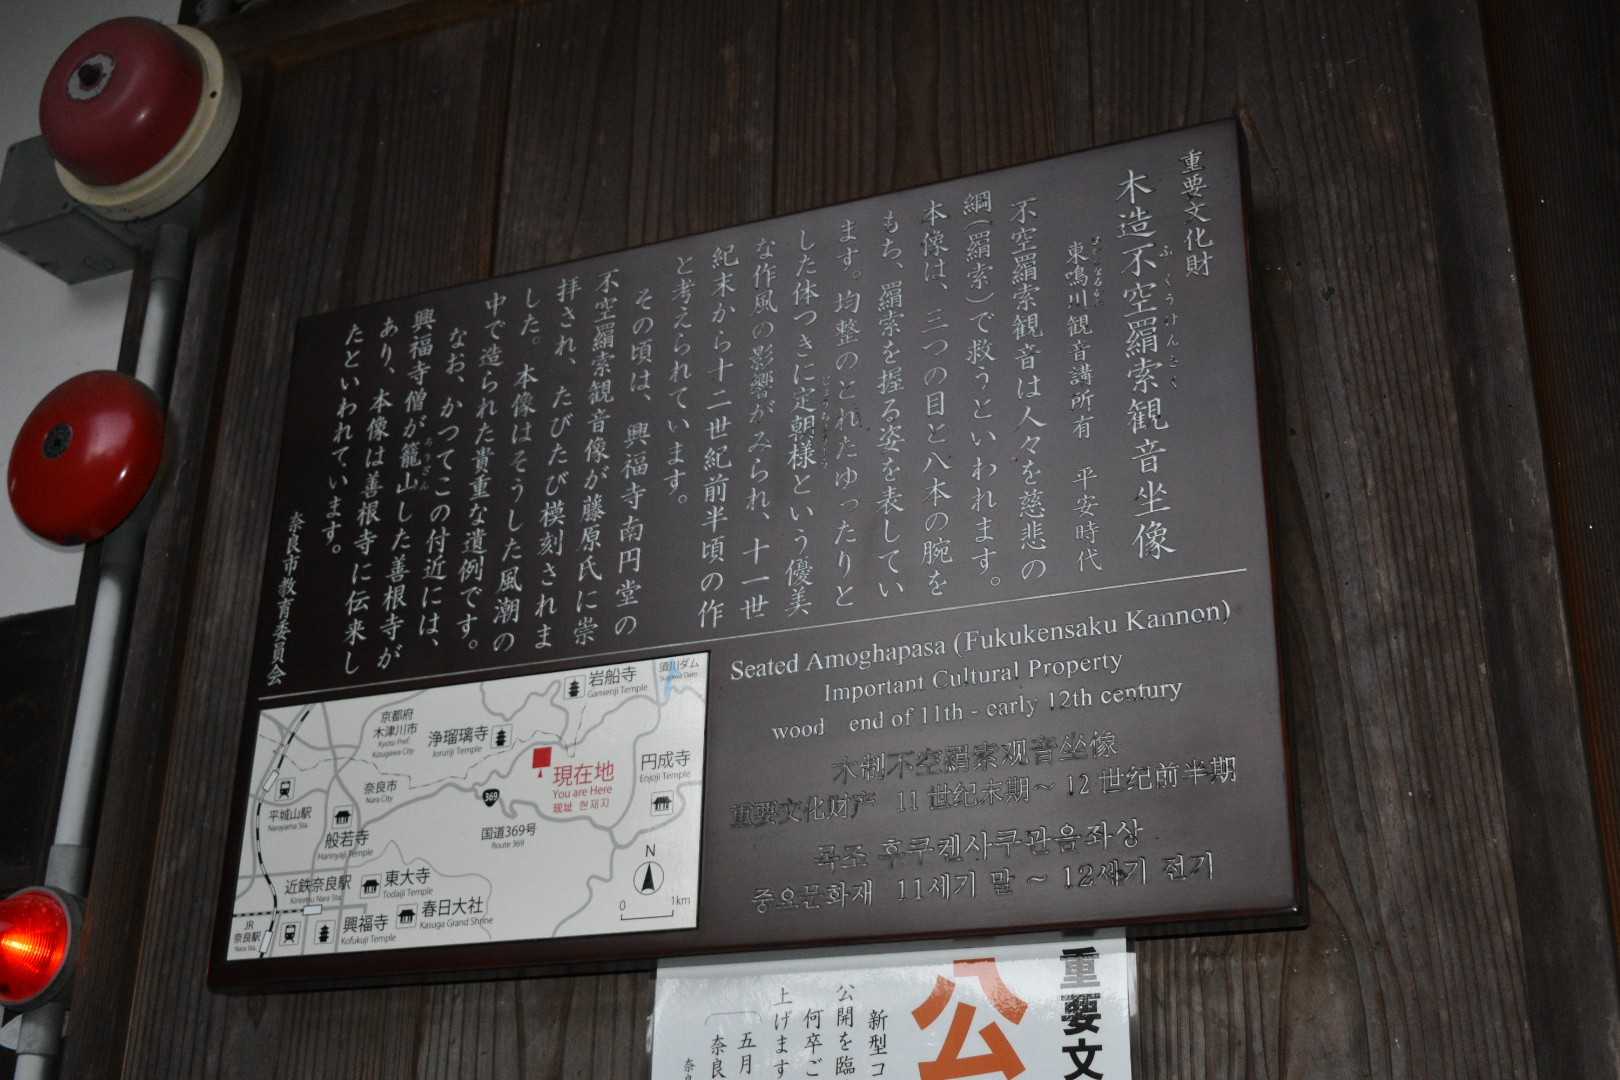 重要文化財
木造不空羂索観音坐像
ふくうけんさく
東鳴川観音講所有 平安時代
不空羂索観音は人々を慈悲の
綱(羂索)で救うといわれます。
本像は、三つの目と八本の腕を
もち、羂索を握る姿を表してい
ます。均整のとれたゆったりと
した体つきに定朝様という優美
じょうちょうよう
な作風の影響がみられ、十一世
紀末から十二世紀前半頃の作
と考えられています。
その頃は、興福寺南円堂の
不空羂索観音像が藤原氏に崇
拝され、たびたび模刻されま
した。本像はそうした風潮の
中で造られた貴重な遺例です。
なお、かつてこの付近には、
興福寺僧が籠山した善根寺が
ろうざん
あり、本像は善根寺に伝来し
たといわれています。
奈良市教育委員会
Seated Amoghapasa (Fukukensaku Kannon)
Important Cultural Property
wood end of 11th - early 12th century
木制不空羂索观音坐像
重要文化财产 11世纪末期~12世纪前半期
목조 후쿠켄사쿠관음좌상
중요문화재 11세기 말 ~ 12세기 전기
岩船寺
Gansenji Temple
須川ダム
Sugawa Dam
京都府
木津川市
Kyoto Pref.
Kizugawa City
浄瑠璃寺
Joruriji Temple
現在地
You are Here
现址 현재지
円成寺
Enjoji Temple
奈良市
Nara City
369
平城山駅
Narayama Sta.
般若寺
Hannyaji Temple
国道369号
Route 369
N
0 1km
近鉄奈良駅
Kintetsu Nara Sta.
東大寺
Todaiji Temple
JR
奈良駅
Nara Sta.
興福寺
Kofukuji Temple
春日大社
Kasuga Grand Shrine
重要文
公
新型コ
公開を臨
何卒ご
上げます
五月
奈良